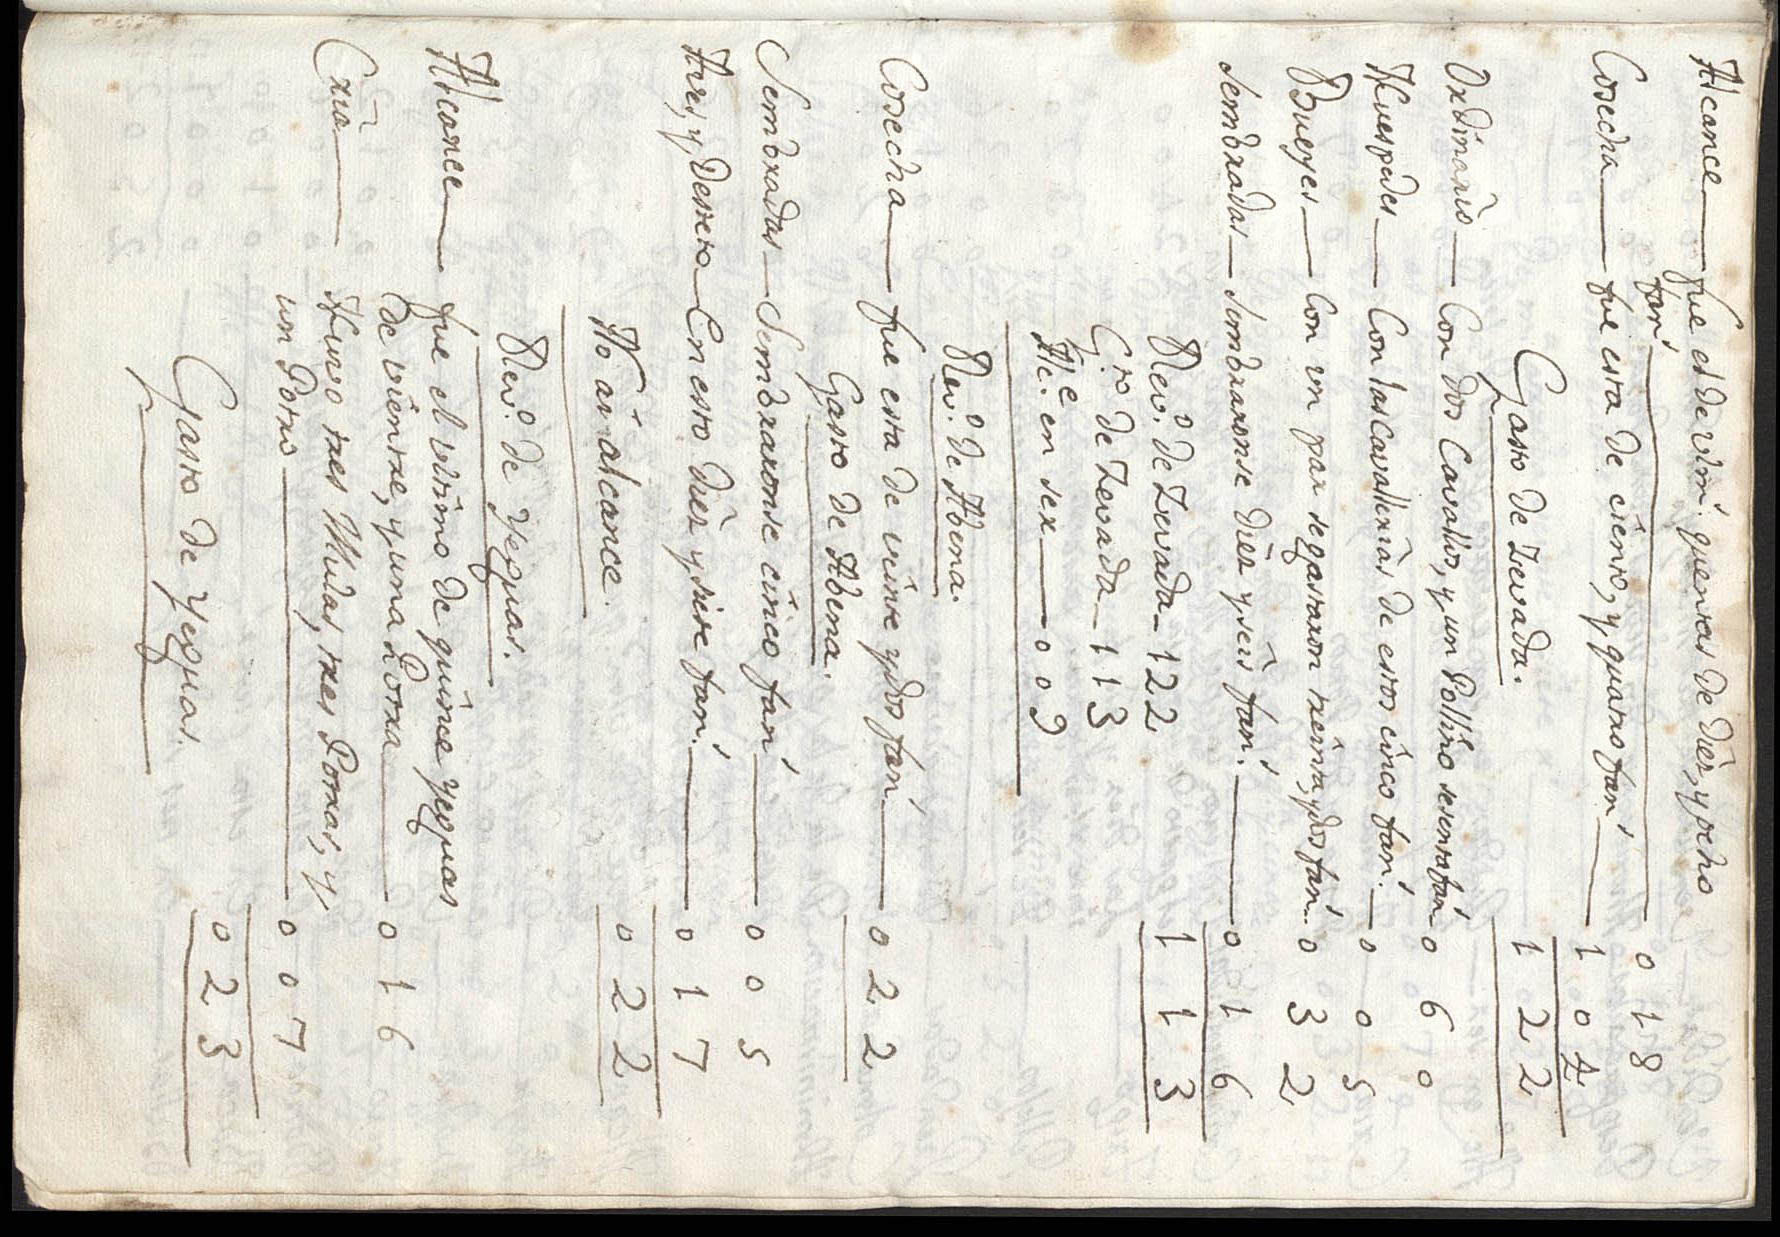 Alcance — fue el de ultim.s quentas de diez, y ocho
fan.s — 018
Cosecha — fue esta de ciento, y quatro fan.s — 104
122
Gasto de Zevada.
Ordinario — Con dos Cavallos, y un Pollino sesenta fan.s 060
Huespedes — Con las Cavallerias de estos cinco fan.s — 005
Bueyes — Con un par se gastaron treinta, y dos fan.s 032
Sembradas — Sembraronse diez y seis fan.s — 016
113
Rev.o de Zevada — 122
G.to de Zevada — 113
Al.e en ser — 009
Rev.o de Abena.
Cosecha — fue esta de veinte y dos fan.s — 022
Gasto de Abena.
Sembradas — Sembraronse cinco fan.s — 005
Ares, y Destero — En esto diez y siete fan.s — 017
022
No ai alcance.
Rev.o de Yeguas.
Alcance — fue el ultimo de quince yeguas
de vientre, y una Potra — 016
Cria — Huvo tres Mulas, tres Potras, y
un Potro — 007
023
Gasto de Yeguas.